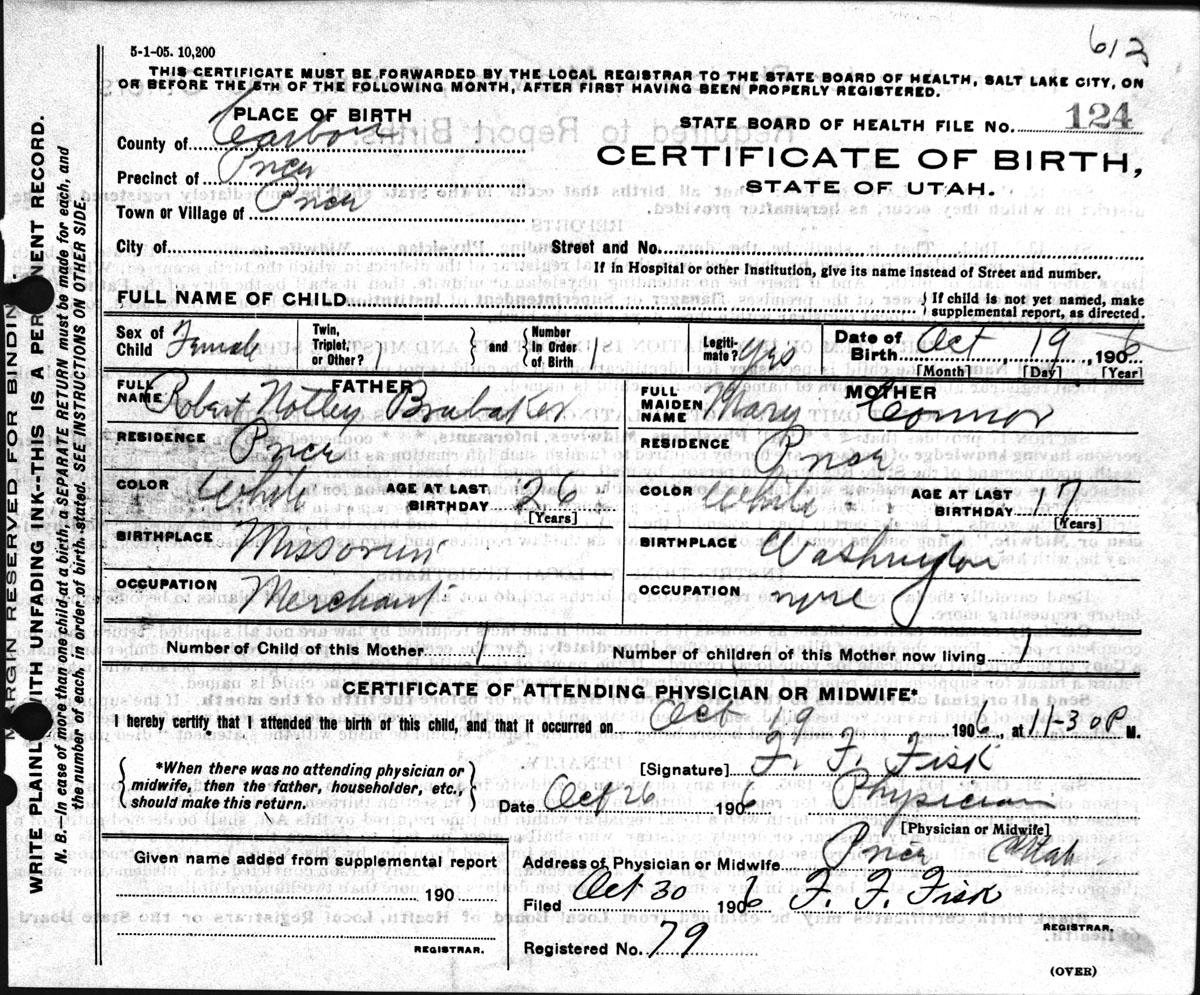 612
5-1-05. 10,200
THIS CERTIFICATE MUST BE FORWARDED BY THE LOCAL REGISTRAR TO THE STATE BOARD OF HEALTH, SALT LAKE CITY, ON
OR BEFORE THE 5TH OF THE FOLLOWING MONTH, AFTER FIRST HAVING BEEN PROPERLY REGISTERED.
PLACE OF BIRTH
STATE BOARD OF HEALTH FILE NO. 124
County of Carbon
CERTIFICATE OF BIRTH,
Precinct of Price
STATE OF UTAH.
Town or Village of Price
City of Street and No.
If in Hospital or other Institution, give its name instead of Street and number.
FULL NAME OF CHILD { If child is not yet named, make
supplemental report, as directed.
Sex of Child Female Twin, Triplet, or Other? } and { Number in Order of Birth 1 Legiti-mate? Yes Date of Birth Oct 19, 1906
[Month] [Day] [Year]
FATHER
FULL NAME Robert Notley Brubaker
RESIDENCE Price
COLOR White AGE AT LAST BIRTHDAY 26
[Years]
BIRTHPLACE Missouri
OCCUPATION Merchant
MOTHER
FULL MAIDEN NAME Mary Connor
RESIDENCE Price
COLOR White AGE AT LAST BIRTHDAY 17
[Years]
BIRTHPLACE Washington
OCCUPATION
Number of Child of this Mother 1 Number of children of this Mother now living 1
CERTIFICATE OF ATTENDING PHYSICIAN OR MIDWIFE*
I hereby certify that I attended the birth of this child, and that it occurred on Oct 19 1906, at 11-30 P M.
{ *When there was no attending physician or
midwife, then the father, householder, etc.,
should make this return. }
[Signature] F. F. Fisk
Date Oct 26 1906 Physician
[Physician or Midwife]
Given name added from supplemental report
190
REGISTRAR.
Address of Physician or Midwife Price Utah
Filed Oct 30 1906 F. F. Fisk
REGISTRAR.
Registered No. 79
(OVER)
MARGIN RESERVED FOR BINDING.
WRITE PLAINLY WITH UNFADING INK--THIS IS A PERMANENT RECORD.
N. B.—In case of more than one child at a birth, a SEPARATE RETURN must be made for each, and
the number of each, in order of birth, stated. SEE INSTRUCTIONS ON OTHER SIDE.